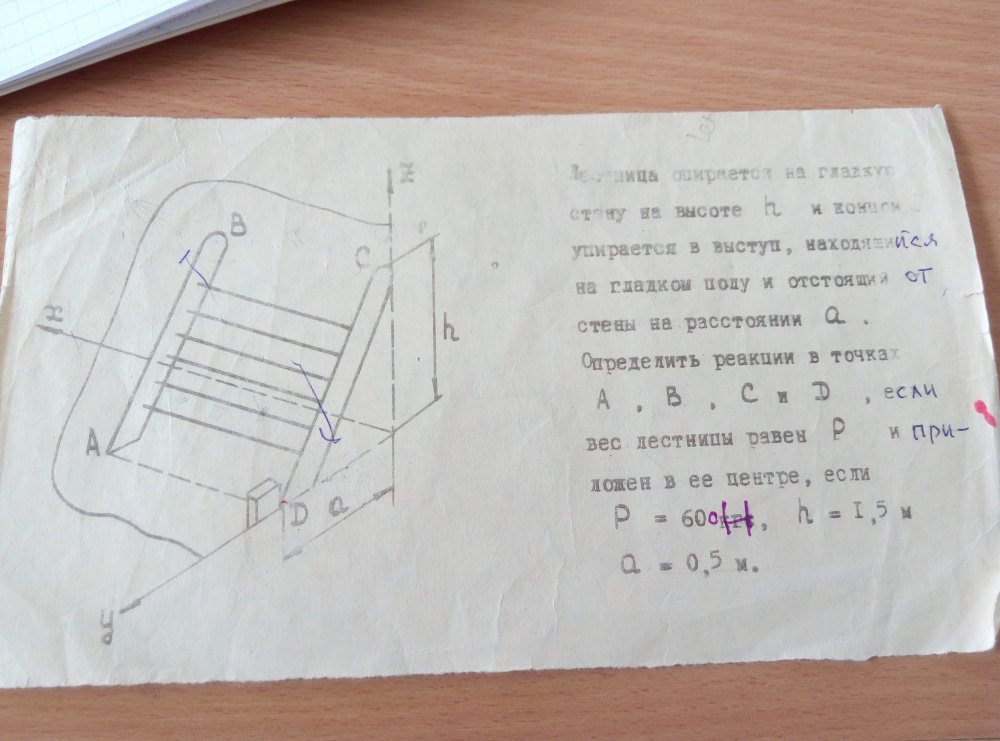 Лестница опирается на гладкую
стену на высоте h и концом
упирается в выступ, находящийся
на гладком полу и отстоящий от
стены на расстоянии a.
Определить реакции в точках
A, B, C и D, если
вес лестницы равен P и при-
ложен в ее центре, если
P = 600 H, h = I,5 м
a = 0,5 м.
z
B
C
x
h
A
D
a
y